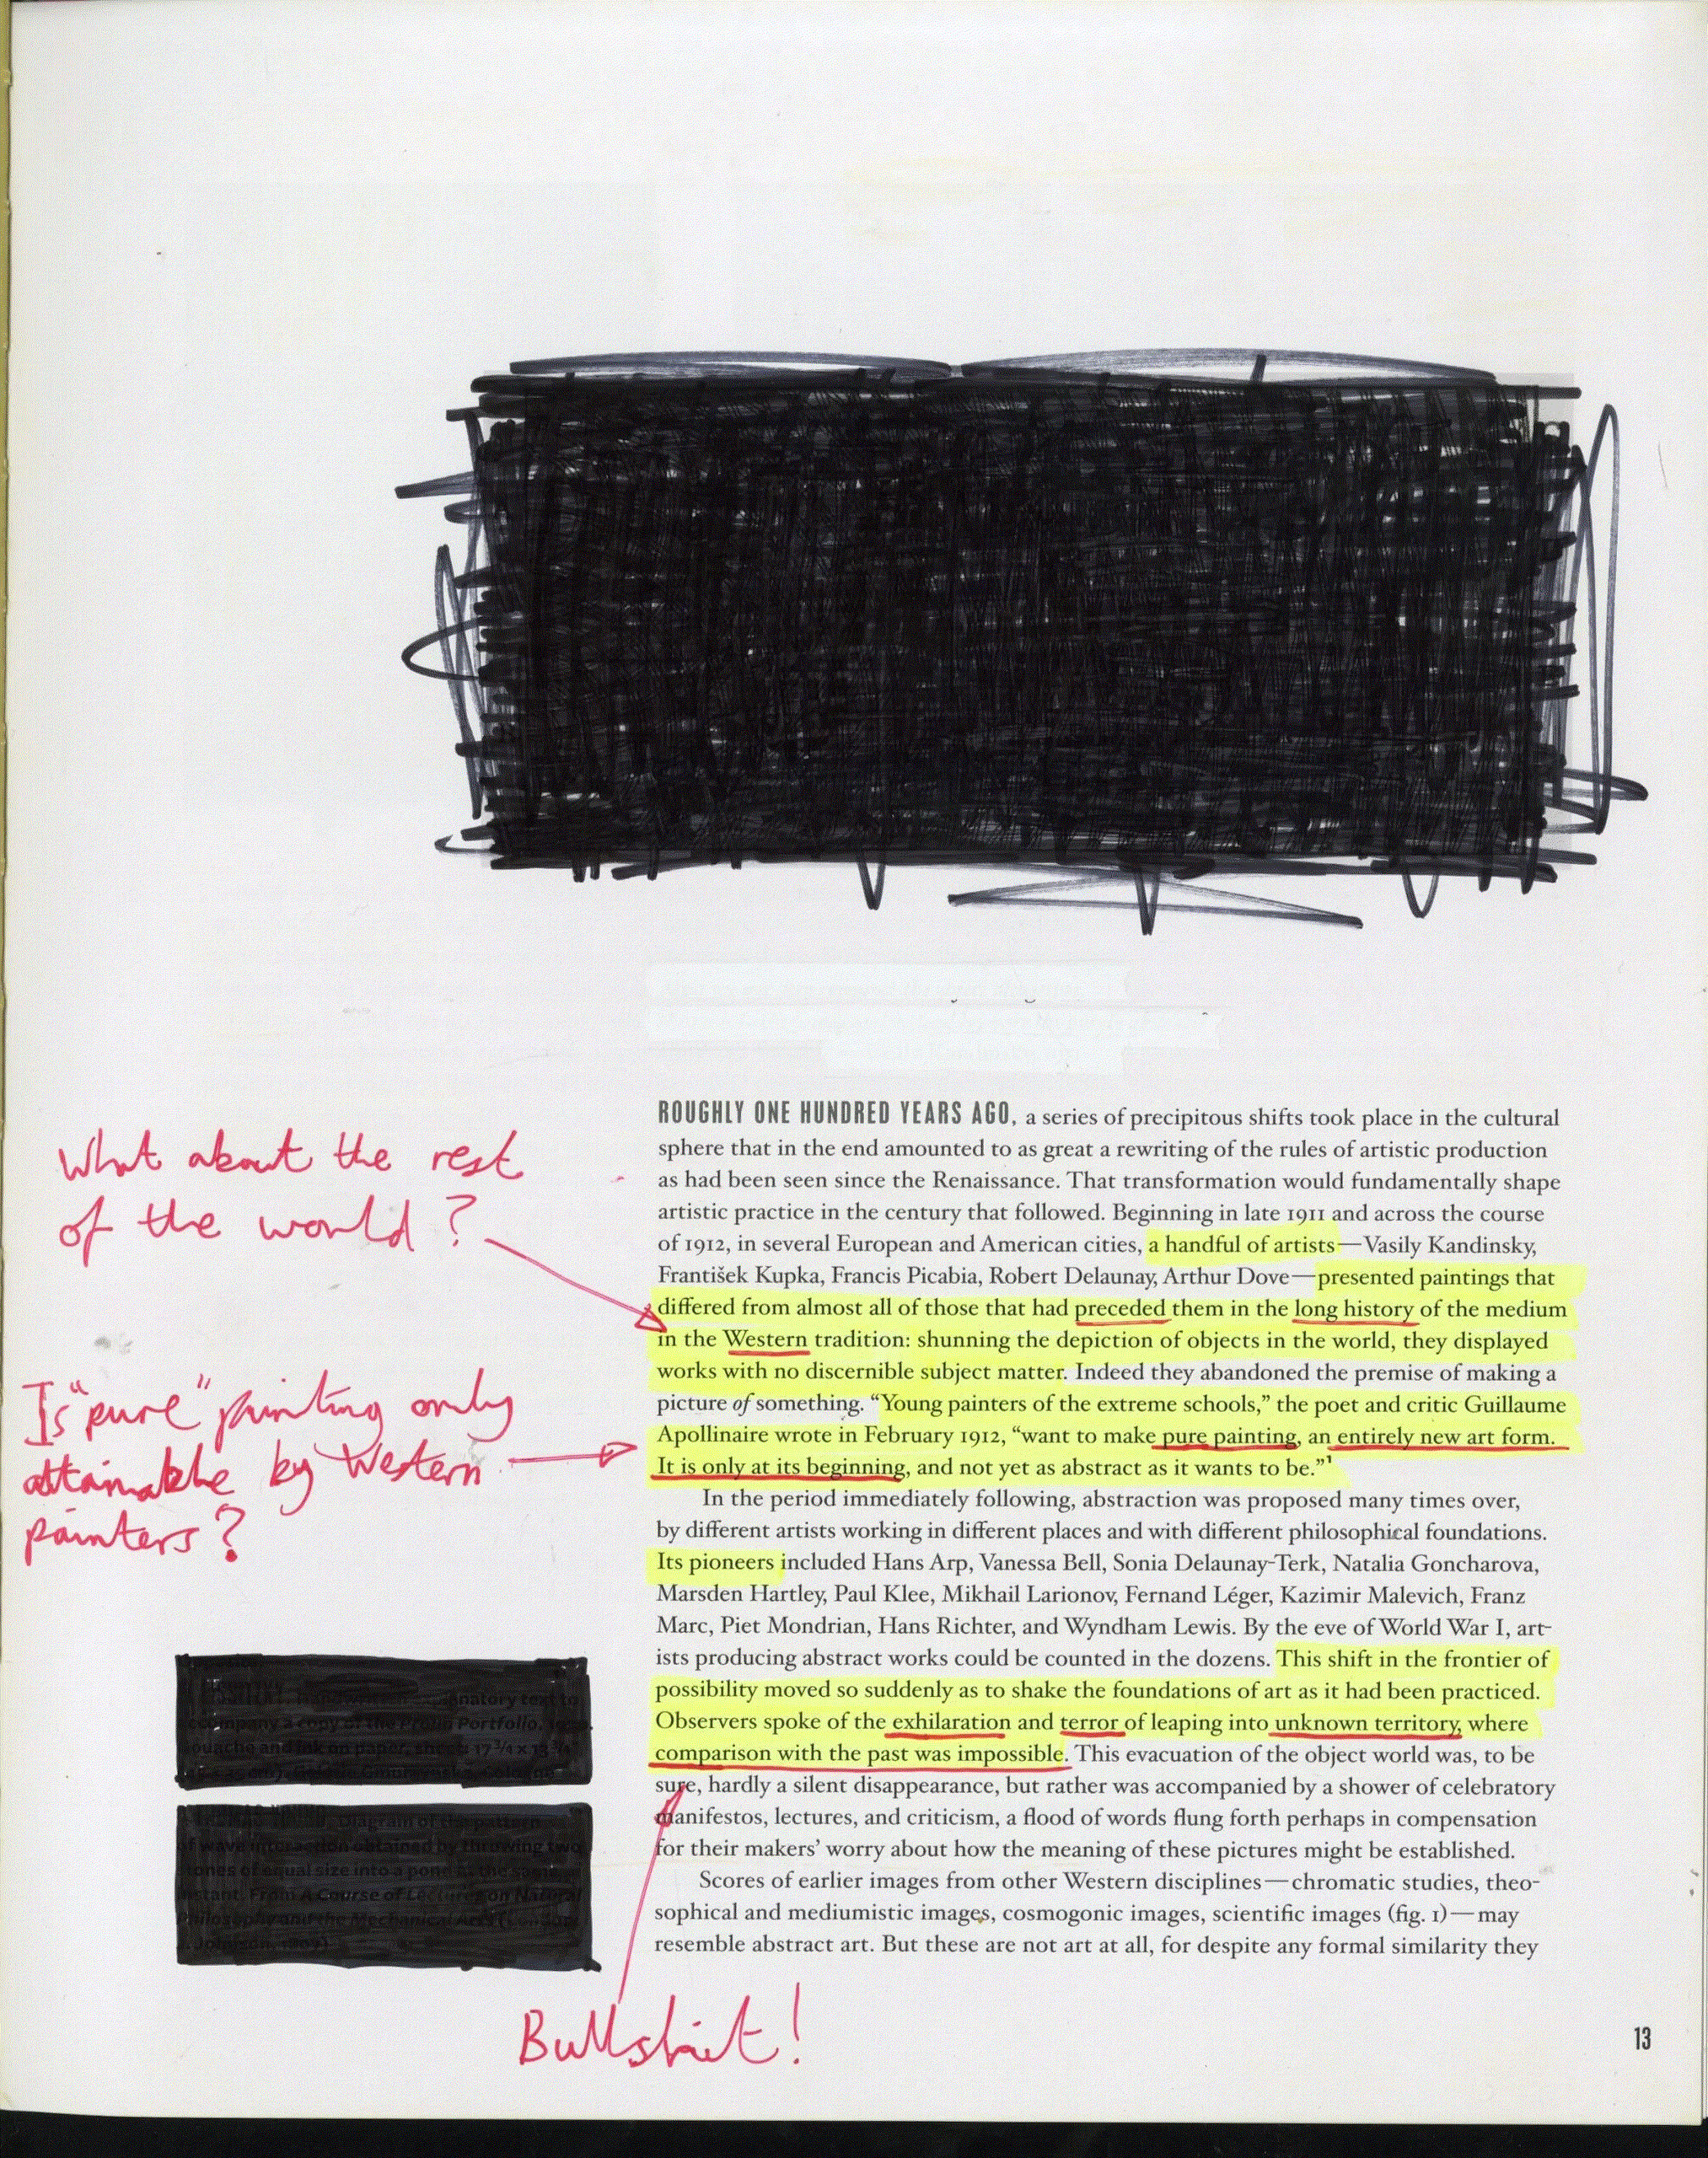 What about the rest
of the world?
Is "pure" painting only
attainable by Western
painters?
ROUGHLY ONE HUNDRED YEARS AGO, a series of precipitous shifts took place in the cultural
sphere that in the end amounted to as great a rewriting of the rules of artistic production
as had been seen since the Renaissance. That transformation would fundamentally shape
artistic practice in the century that followed. Beginning in late 1911 and across the course
of 1912, in several European and American cities, a handful of artists—Vasily Kandinsky,
František Kupka, Francis Picabia, Robert Delaunay, Arthur Dove—presented paintings that
differed from almost all of those that had preceded them in the long history of the medium
in the Western tradition: shunning the depiction of objects in the world, they displayed
works with no discernible subject matter. Indeed they abandoned the premise of making a
picture of something. “Young painters of the extreme schools,” the poet and critic Guillaume
Apollinaire wrote in February 1912, “want to make pure painting, an entirely new art form.
It is only at its beginning, and not yet as abstract as it wants to be.”1
In the period immediately following, abstraction was proposed many times over,
by different artists working in different places and with different philosophical foundations.
Its pioneers included Hans Arp, Vanessa Bell, Sonia Delaunay-Terk, Natalia Goncharova,
Marsden Hartley, Paul Klee, Mikhail Larionov, Fernand Léger, Kazimir Malevich, Franz
Marc, Piet Mondrian, Hans Richter, and Wyndham Lewis. By the eve of World War I, art-
ists producing abstract works could be counted in the dozens. This shift in the frontier of
possibility moved so suddenly as to shake the foundations of art as it had been practiced.
Observers spoke of the exhilaration and terror of leaping into unknown territory, where
comparison with the past was impossible. This evacuation of the object world was, to be
sure, hardly a silent disappearance, but rather was accompanied by a shower of celebratory
manifestos, lectures, and criticism, a flood of words flung forth perhaps in compensation
for their makers’ worry about how the meaning of these pictures might be established.
Scores of earlier images from other Western disciplines—chromatic studies, theo-
sophical and mediumistic images, cosmogonic images, scientific images (fig. 1)—may
resemble abstract art. But these are not art at all, for despite any formal similarity they
natory text to
company a copy of the Portfolio,
ouache and ink on paper, sheet: 17 3/4 x
Diagram of the pattern
of wave interaction obtained by throwing two
stones of equal size into a pond at the same
instant. From A Course of Lectures on Natural
Philosophy and the Mechanical Arts
Bullshit!
13